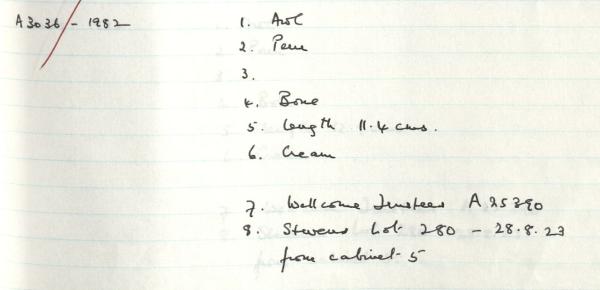 A3036 - 1982
1. Awl
2. Peru
3.
4. Bone
5. length 11.4 cms.
6. Cream
7. Wellcome Trustees A 25390
8. Stevens Lot 280 - 28.8.23
from cabinet 5